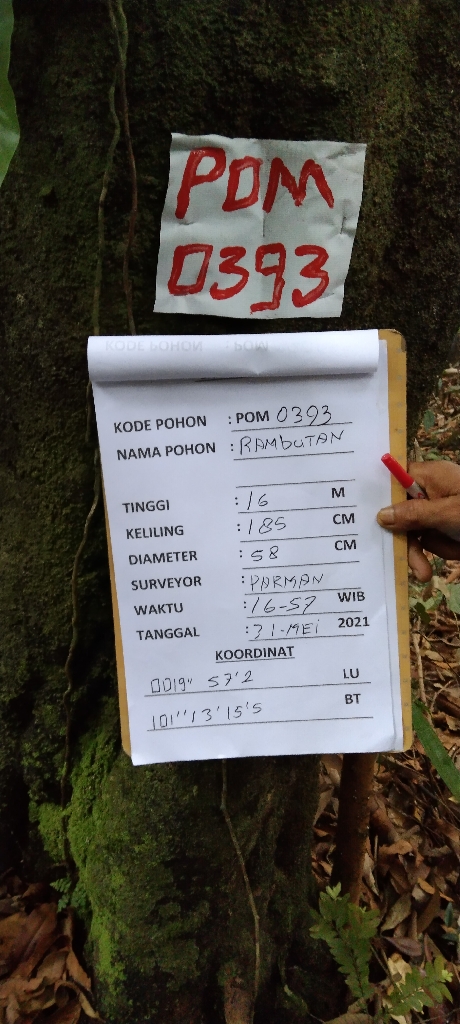 POM
0393
KODE POHON : POM
KODE POHON : POM 0393
NAMA POHON : RAMBUTAN
TINGGI : 16 M
KELILING : 185 CM
DIAMETER : 58 CM
SURVEYOR : PARMAN
WAKTU : 16-57 WIB
TANGGAL : 31-MEi 2021
KOORDINAT
0019" 57'2 LU
101"13'15'5 BT